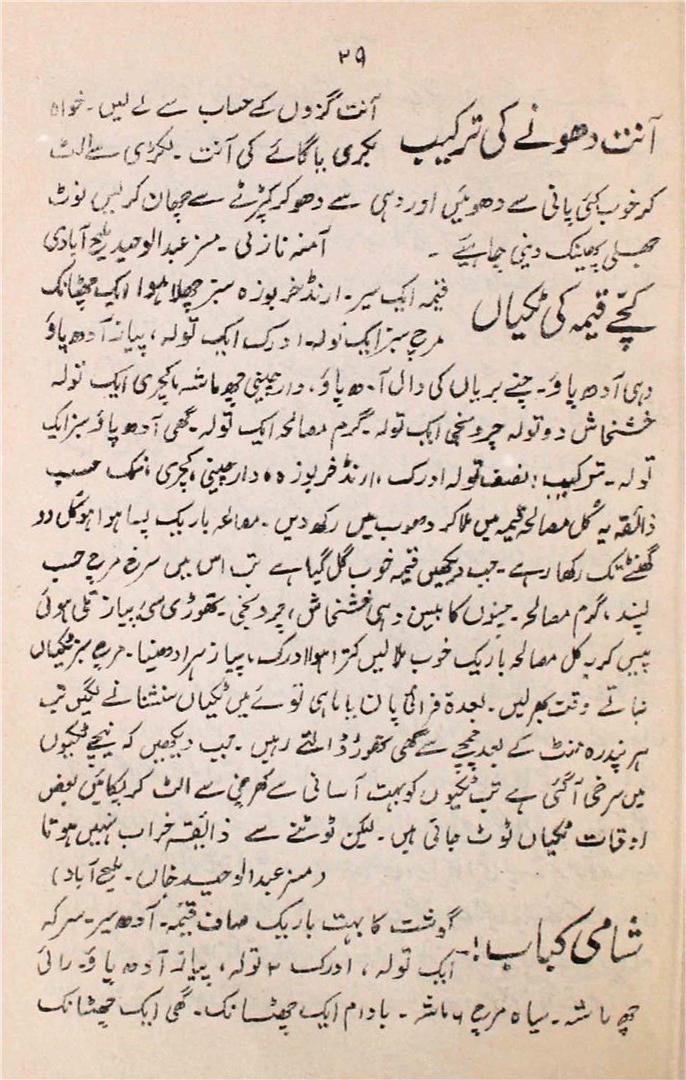 ۲۹
آنت دھونے کی ترکیب
آنت گزوں کے حساب سے لے لیں۔ خواہ
بکری یا گائے کی آنت۔ لکڑی سے الٹ
کر خوب کئی پانی سے دھوئیں اور دہی سے دھو کر کپڑے سے چھان کر لیں نوٹ
جھلی پھینک دینی چاہیئے۔ آمنہ نازلی۔ مسز عبدالوحید ملیح آبادی
کچّے قیمہ کی ٹکیاں
قیمہ ایک سیر۔ ارنڈ خربوزہ سبز چھلا ہوا ایک چھٹانک
مرچ سبز ایک تولہ۔ ادرک ایک تولہ، پیاز آدھ پاؤ
دہی آدھ پاؤ۔ چنے بریاں کی دال آدھ پاؤ، دارچینی چھ ماشہ، کچری ایک تولہ
خشخاش دو تولہ چرونجی ایک تولہ۔ گرم مصالحہ ایک تولہ۔ گھی آدھ پاؤ سبز ایک
تولہ۔ ترکیب: نصف تولہ ادرک، ارنڈ خربوزہ، دارچینی، کچری، نمک حسب
ذائقہ یہ کُل مصالحہ قیمہ میں ملا کر دھوپ میں رکھ دیں۔ مصالحہ باریک پسا ہوا ہو کُل دو
گھنٹے تک رکھا رہے۔ جب دیکھیں قیمہ خوب گل گیا ہے تب اس میں سرخ مرچ حسب
پسند، گرم مصالحہ۔ چنوں کا بیسن دہی خشخاش، چرونجی۔ تھوڑی سی پیاز تلی ہوئی
پیس کر یہ کل مصالحہ باریک خوب ملا لیں کترا ہوا ادرک، پیاز ہرا دھنیا۔ مرچ سبز ٹکیاں
بناتے وقت بھر لیں۔ بعدہ فرائی پان یا ماہی توے میں ٹکیاں سنسنانے لگیں تب
ہر پندرہ منٹ کے بعد چمچے سے گھی تھوڑ ڈالتے رہیں۔ جب دیکھیں کہ نیچے ٹکیوں
میں سرخی آگئی ہے تب ٹکیوں کو بہت آسانی سے کھرچنی سے الٹ کر پکائیں بعض
اوقات ٹکیاں ٹوٹ جاتی ہیں۔ لیکن ٹوٹنے سے ذائقہ خراب نہیں ہوتا
(مسز عبدالوحید خاں۔ ملیح آباد)
شامی کباب:۔
گوشت کا بہت باریک صاف قیمہ۔ آدھ سیر۔ سرکہ
ایک تولہ، ادرک ۲ تولہ، پیاز آدھ پاؤ۔ رائی
چھ ماشہ۔ سیاہ مرچ ۶ ماشہ۔ بادام ایک چھٹانک۔ گھی ایک چھٹانک